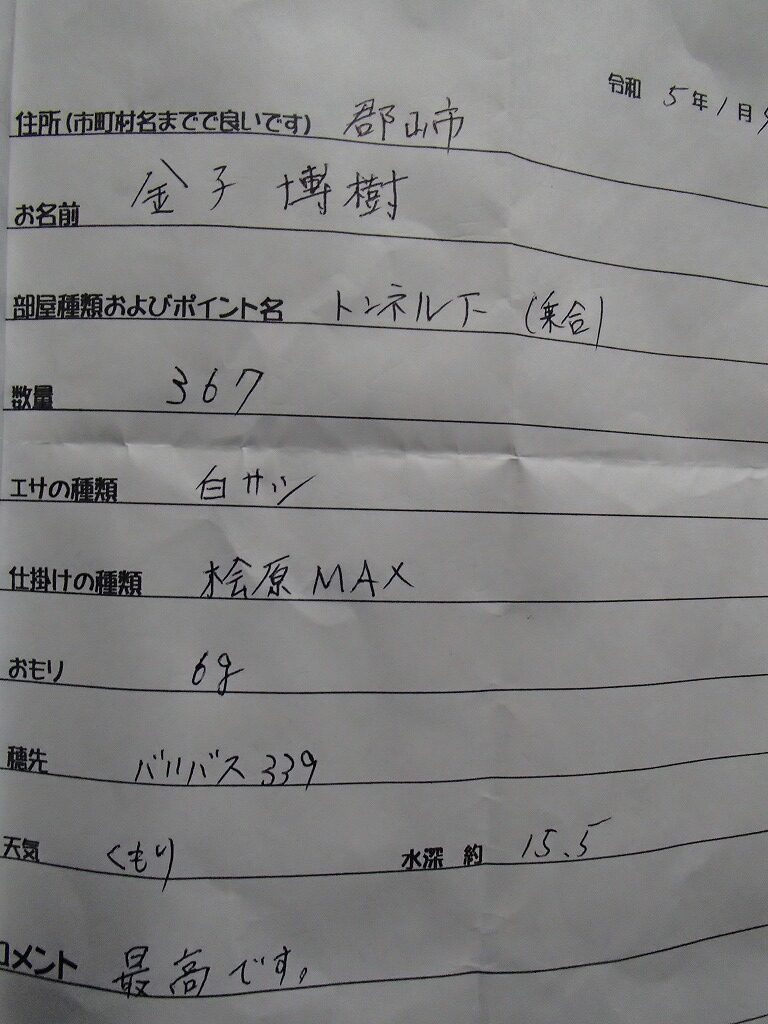 令和 5年1月9
住所(市町村名までで良いです) 郡山市
お名前 金子 博樹
部屋種類およびポイント名 トンネル下 (乗合)
数量 367
エサの種類 白サシ
仕掛けの種類 桧原MAX
おもり 6g
穂先 バリバス 339
天気 くもり 水深 約 15.5
コメント 最高です。